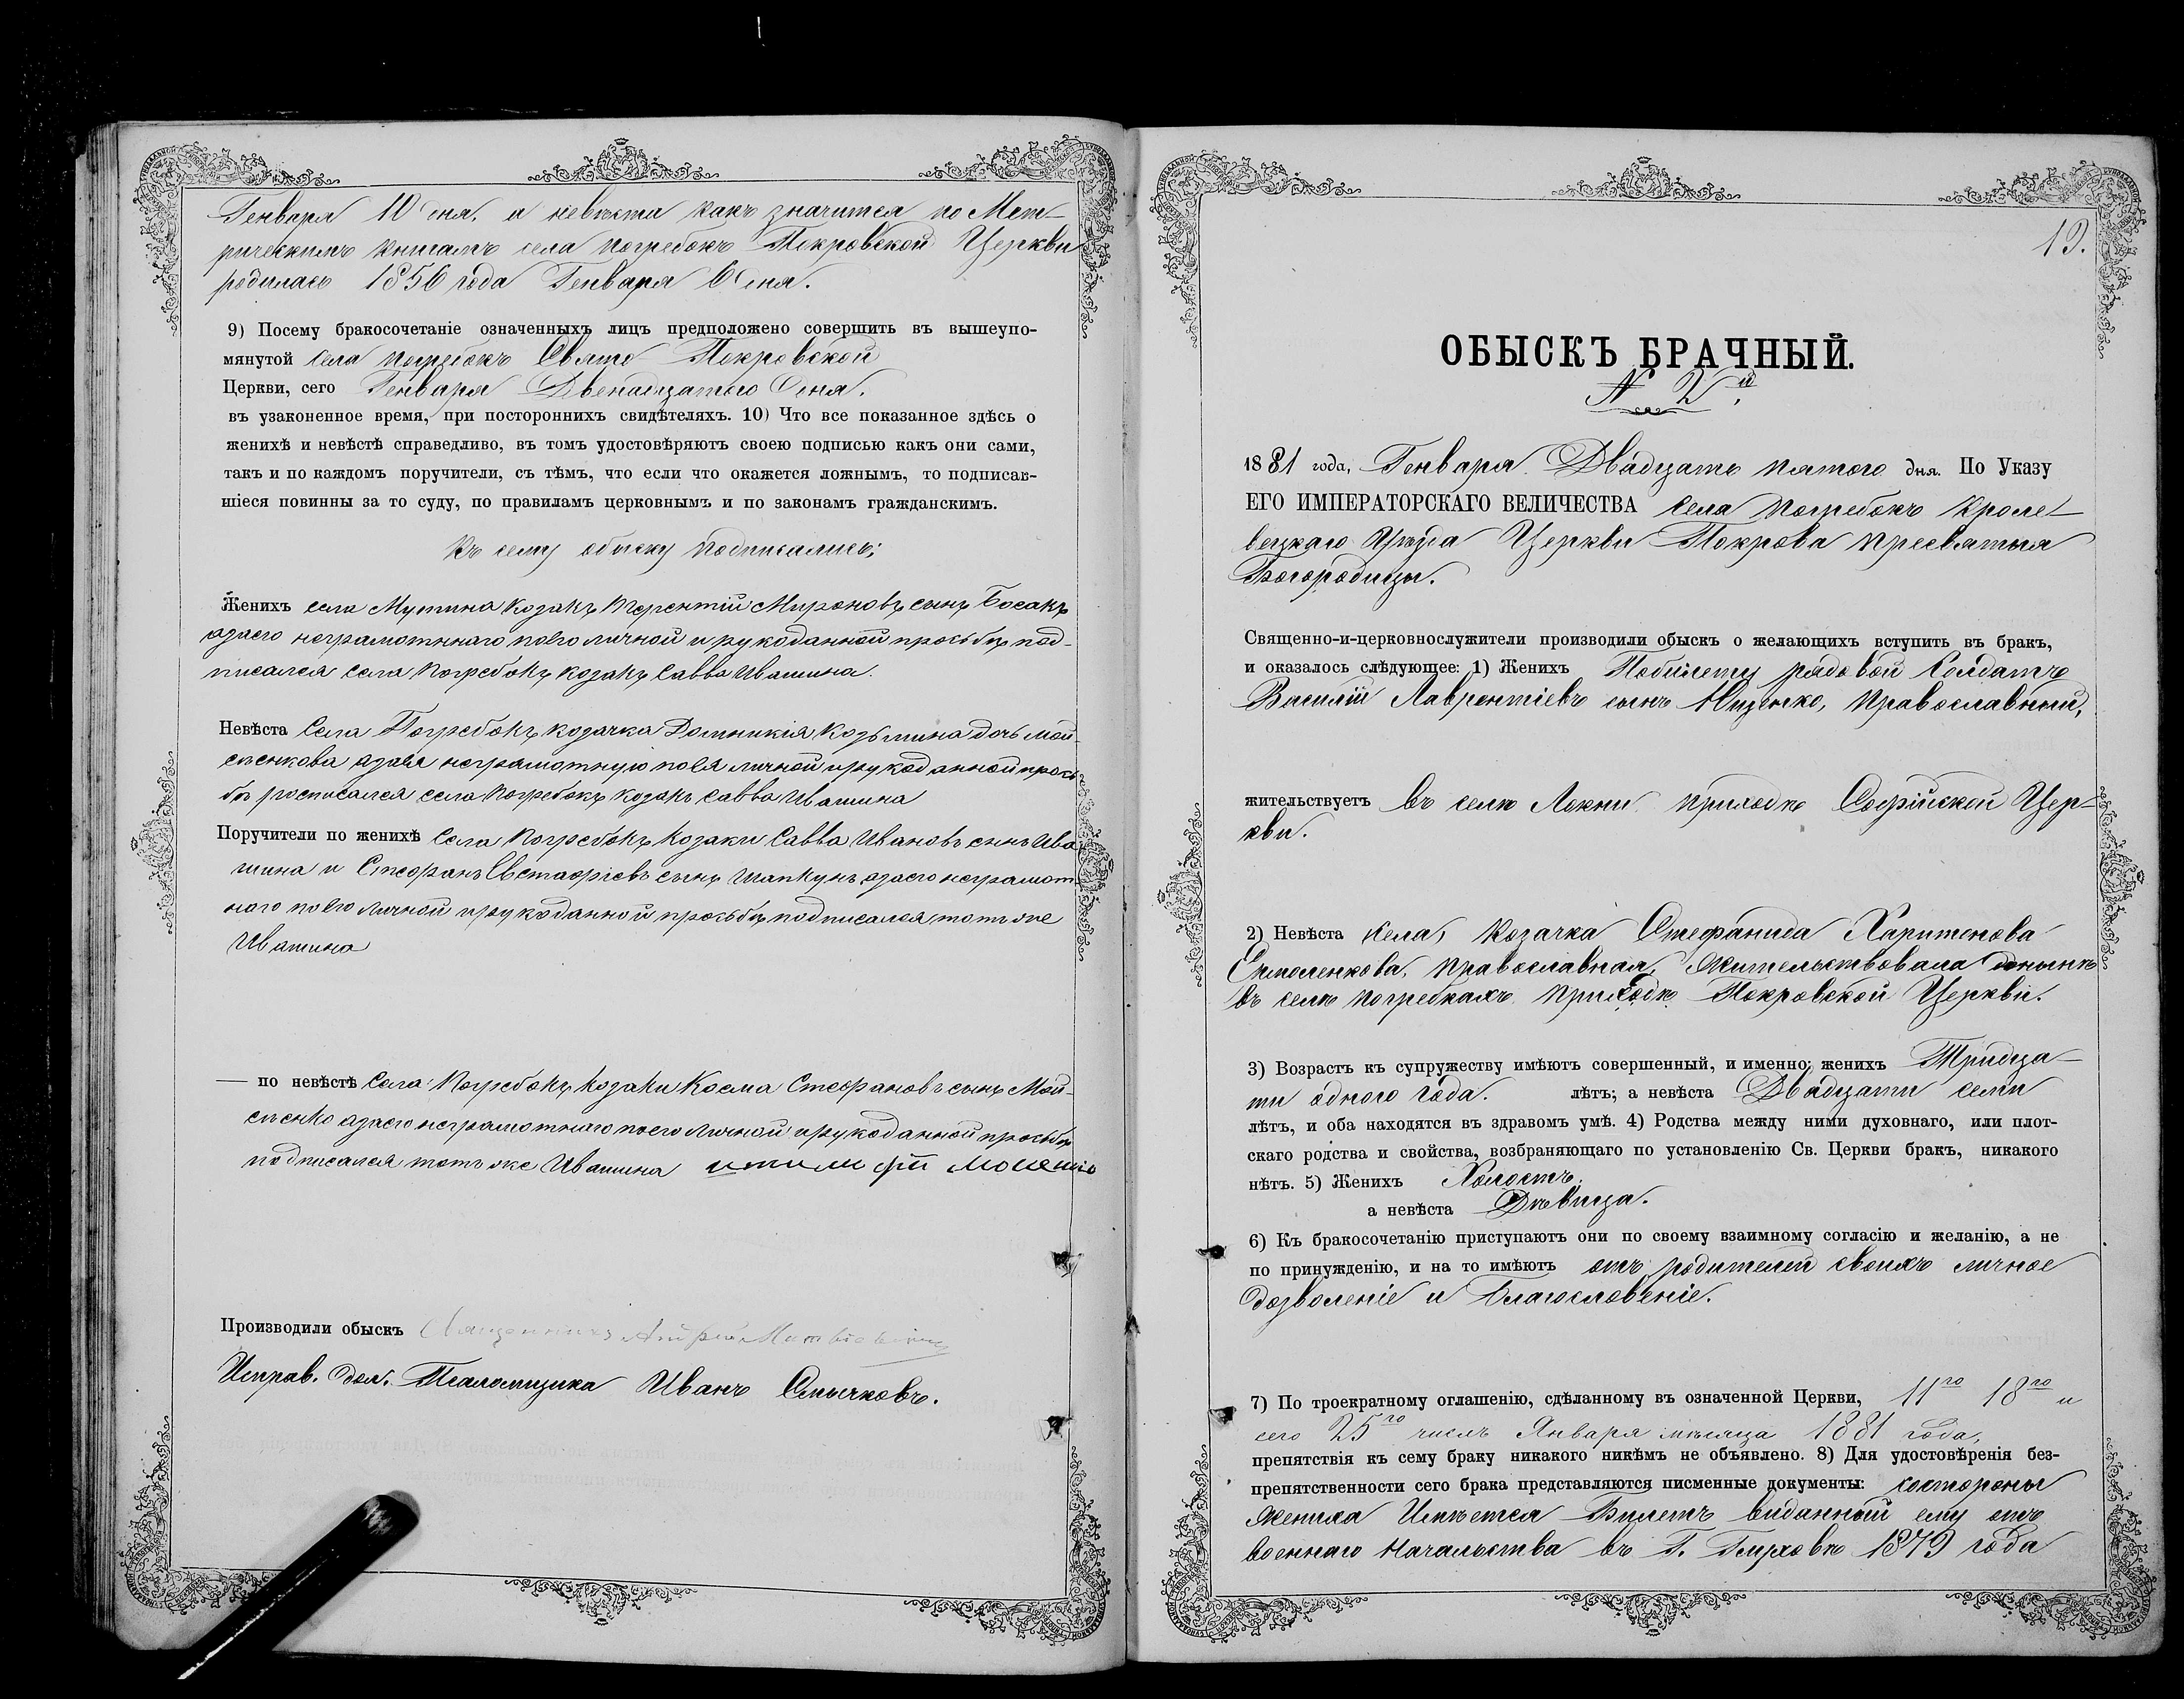 Генваря 10 дня. а невѣста какъ значится по Мет-
рическимъ книгамъ села Погребокъ Покровской Церкви
родилась 1856 года Генваря 6 дня.
9) Посему бракосочетаніе означенныхъ лицъ предположено совершить въ вышеупо-
мянутой села Погребокъ Свято Покровской
Церкви, сего Генваря Двенадцатого дня.
въ узаконенное время, при постороннихъ свидѣтеляхъ. 10) Что все показанное здѣсь о
женихѣ и невѣстѣ справедливо, въ томъ удостовѣряютъ своею подписью какъ они сами,
такъ и по каждомъ поручители, съ тѣмъ, что если что окажется ложнымъ, то подписав-
шіеся повинны за то суду, по правиламъ церковнымъ и по законамъ гражданскимъ.
Къ сему обыску подписались:
Женихъ села Мутина козакъ Терентій Мироновъ сынъ Босакъ
азаего неграмотнаго поего личной и рукоданной прозьбѣ под-
писался села Погребокъ козакъ Савва Ивашина.
Невѣста Села Погребокъ козачка Домникія Козьмина дочь Мой-
сѣенкова азаея неграмотную поея личной ирукоданной прозь
бѣ росписался села Погребокъ козакъ Савва Ивашина
Поручители по женихѣ Села Погребокъ Козаки Савва Ивановъ сынъ Ива
шина и Стефанъ Евстафіевъ сынъ Шапкунъ азаего неграмот-
наго поего личной ирукоданной прозьбѣ подписался тотъ же
Ивашина
— по невѣстѣ Села Погребокъ Козаки Косма Стефановъ сынъ Мой-
сѣенко азаего неграмотнаго поего личной ирукоданной прозьбѣ
подписался тотъ же Ивашина
Производили обыскъ Священникъ
Исправ. дол. Псаломщика Иванъ Смычковъ.
19.
ОБЫСКЪ БРАЧНЫЙ.
N 2й.
1881 года, Генваря Двадцать пятого дня. По Указу
ЕГО ИМПЕРАТОРСКАГО ВЕЛИЧЕСТВА села Погребокъ Кроле-
вецкаго Уѣзда Церкви Покрова Пресвятыя
Богородицы.
Священно-и-церковнослужители производили обыскъ о желающихъ вступить въ бракъ,
и оказалось слѣдующее: 1) Женихъ Побилету рядовой Солдатъ
Василій Лаврентіевъ сынъ Ющенко, Православный,
жительствуетъ въ селѣ Локни приходѣ Софійской Цер-
кви.
2) Невѣста села, Козачка Стефанида Харитонова
Ермоленкова, Православная, Жительствовала донынѣ
въ селѣ Погребкахъ приходѣ Покровской Церкви.
3) Возрастъ къ супружеству имѣютъ совершенный, и именно: женихъ Тридца-
ти одного года. лѣтъ; а невѣста Двадцати семи
лѣтъ, и оба находятся въ здравомъ умѣ. 4) Родства между ними духовнаго, или плот-
скаго родства и свойства, возбраняющаго по установленію Св. Церкви бракъ, никакого
нѣтъ. 5) Женихъ Холостъ.
а невѣста Дѣвица.
6) Къ бракосочетанію приступаютъ они по своему взаимному согласію и желанію, а не
по принужденію, и на то имѣютъ отъ родителей своихъ личное
дозволеніе и Благословеніе.
7) По троекратному оглашенію, сдѣланному въ означенной Церкви, 11го 18го и
сего 25го числъ Января мѣсяца 1881 года,
препятствія къ сему браку никакого никѣмъ не объявлено. 8) Для удостовѣренія без-
препятственности сего брака представляются писменные документы: состороны
жениха Имѣется Билетъ виданный ему отъ
военнаго Начальства въ Г. Глуховѣ 1879 года